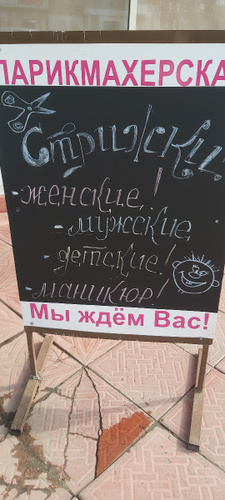 ПАРИКМАХЕРСКА
Стрижки!
- женские!
- мужские
- детские!
- маникюр!
Мы ждём Вас!